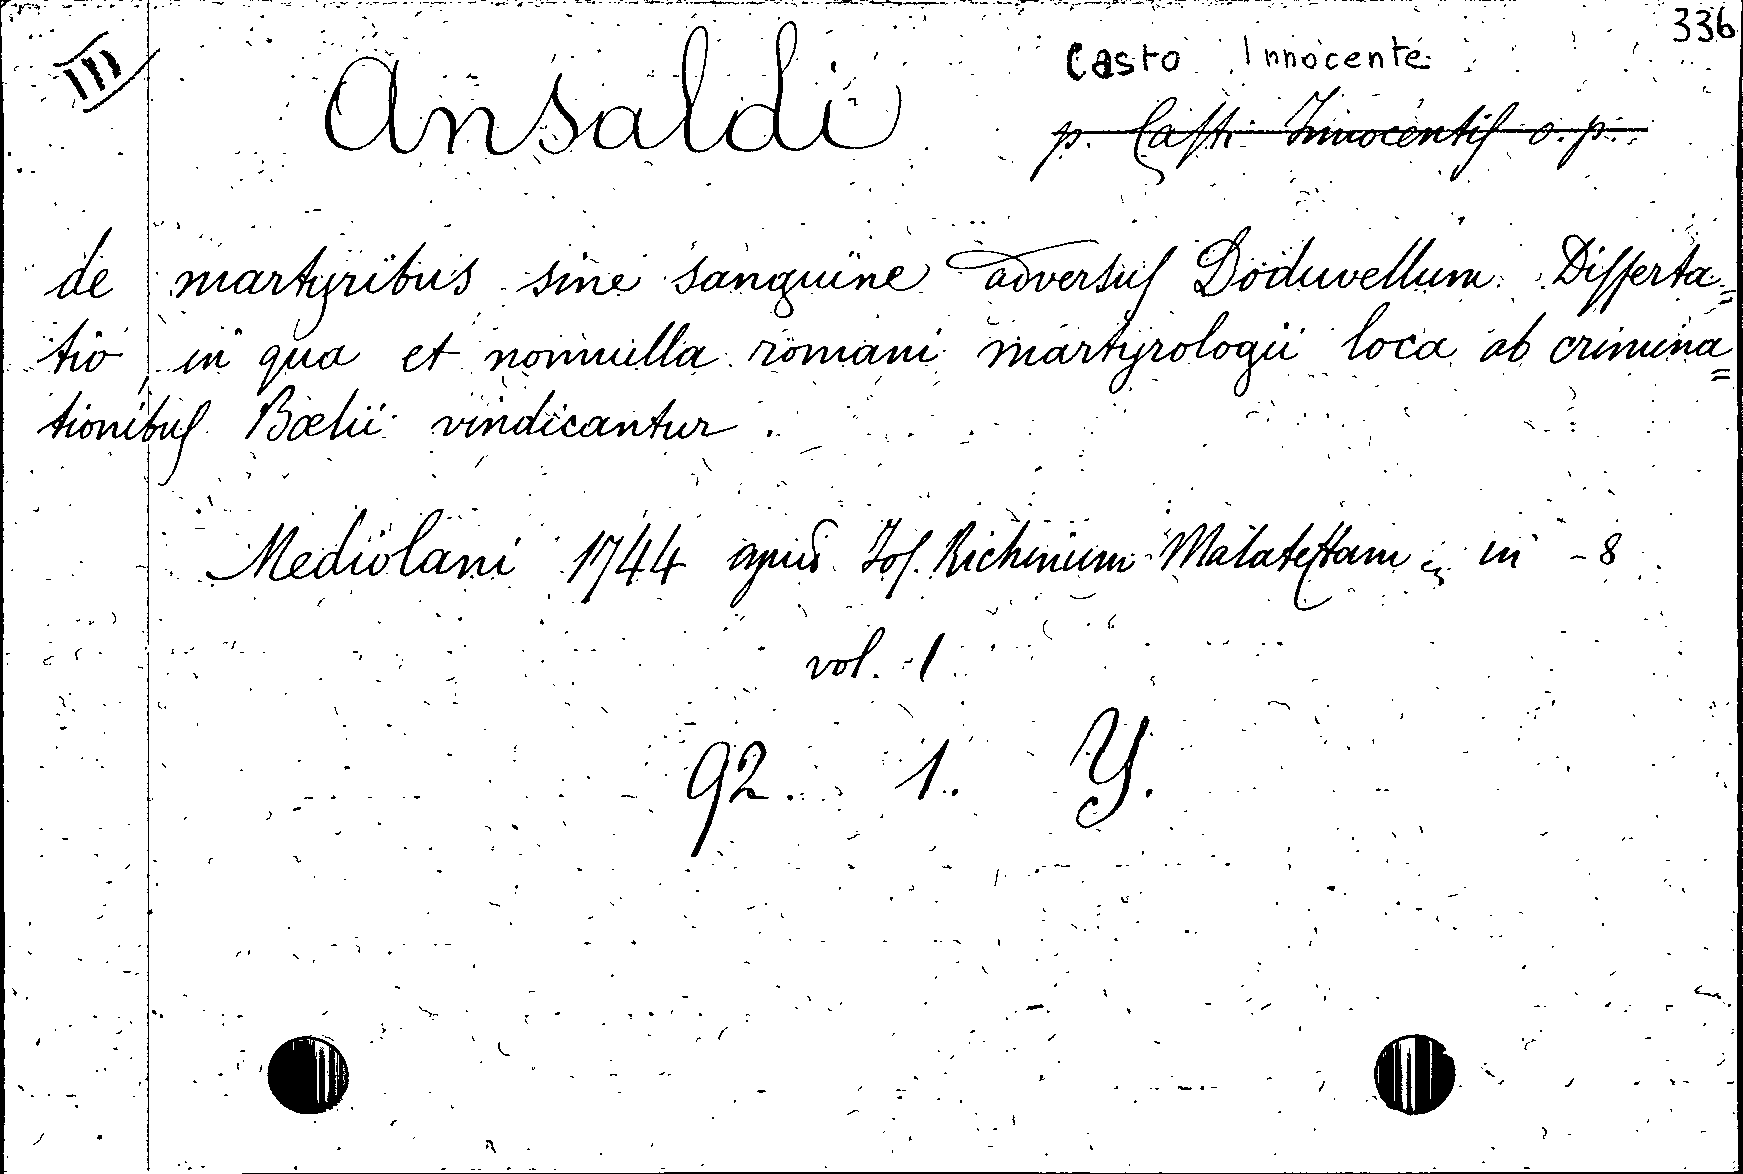 336
III Ansaldi Casto Innocente
p. Casti Innocentis o. p.
de martyribus sine sanguine adversus Doduvellum. Disserta=
tio, in qua et nonnulla romani martyrologii loca ab crimina=
tionibus Bælii vindicantur.
Mediolani 1744 apud Jos. Richinum Malatestam in - 8
vol. 1
92. 1. Y.